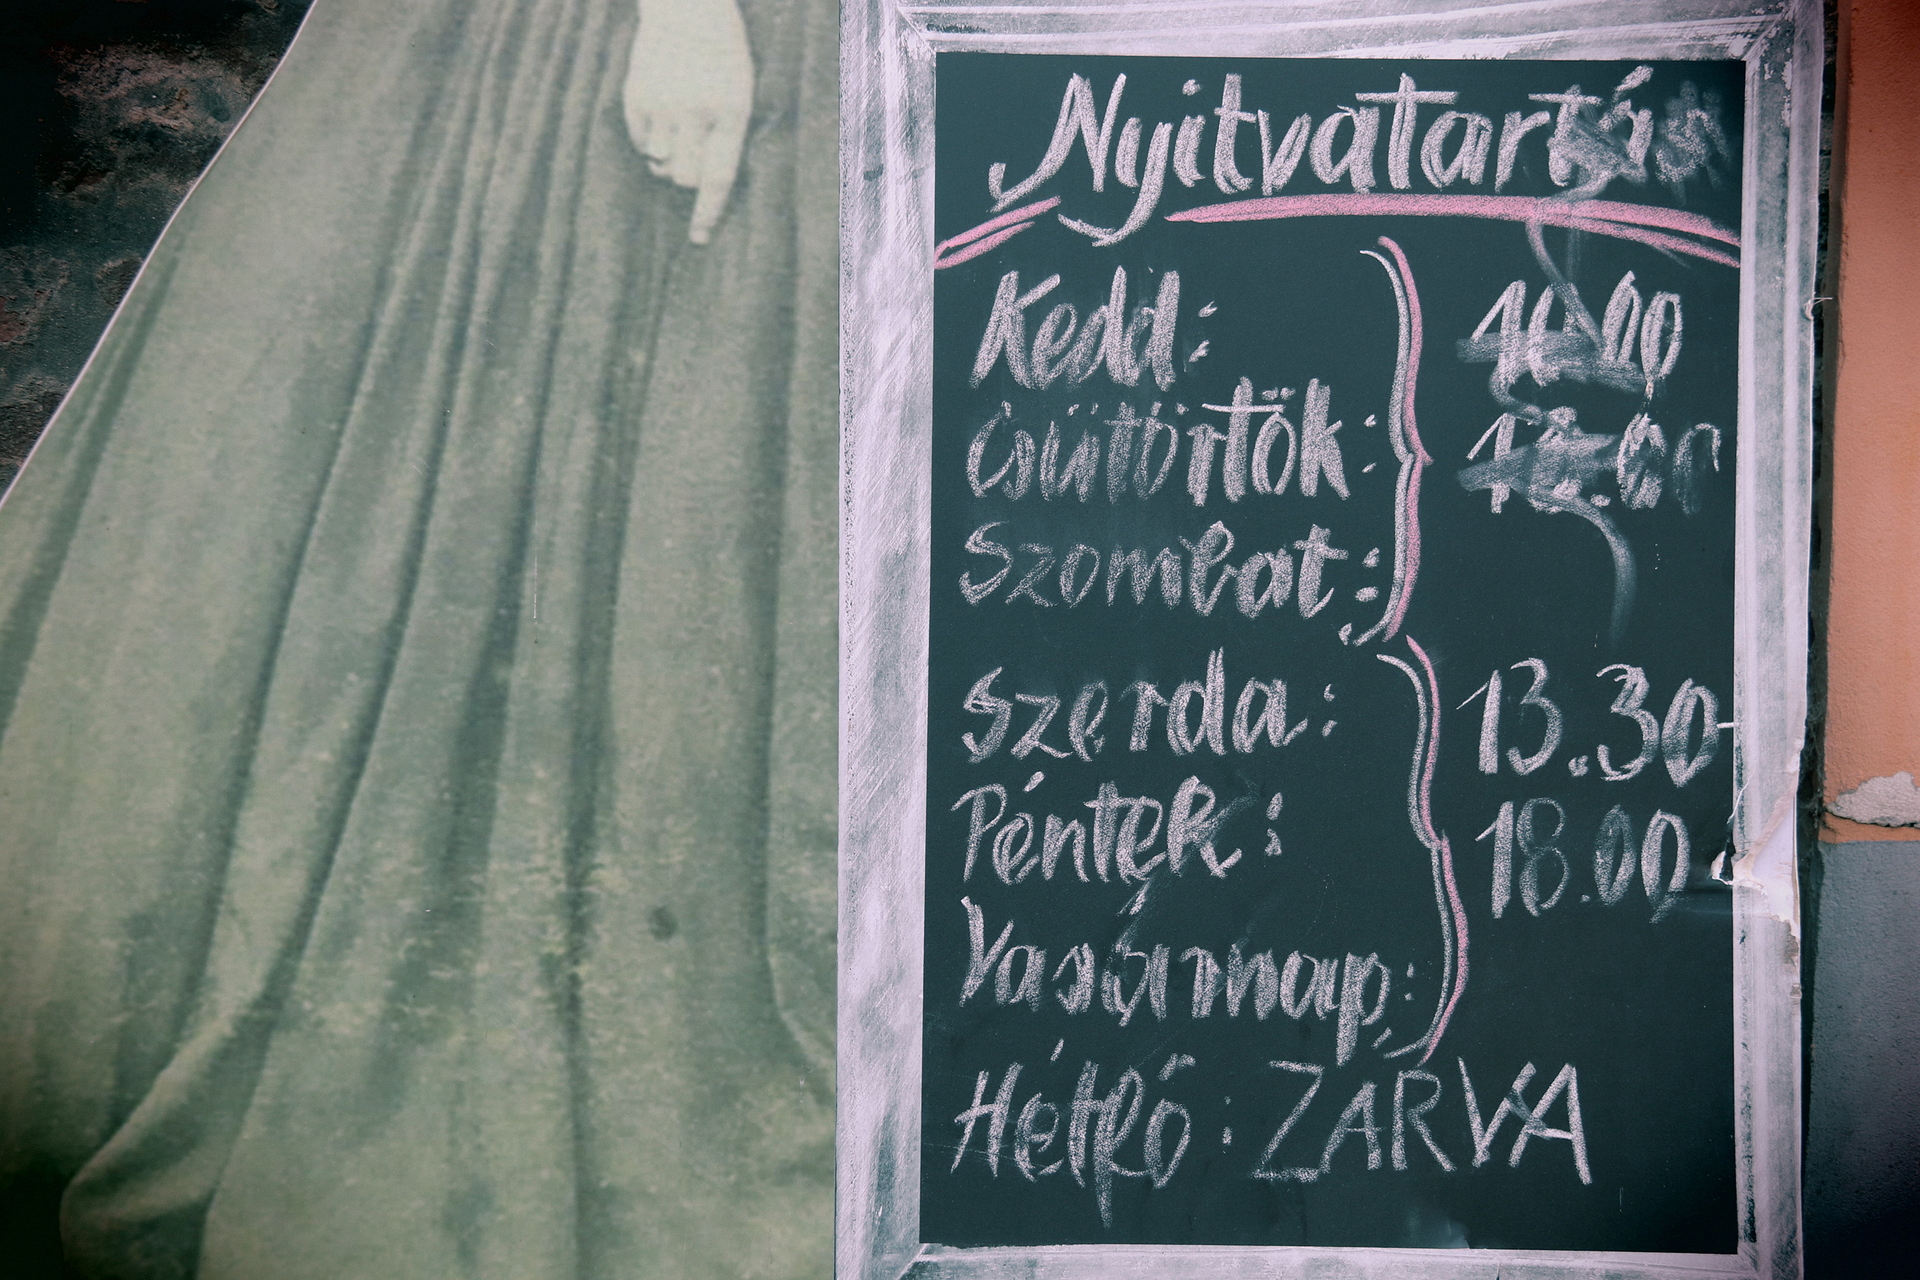 Nyitvatartás
Kedd:
Csütörtök:
Szombat:
Szerda:
13.30-
Péntek:
18.00
Vasárnap:
Hétfő: ZARVA